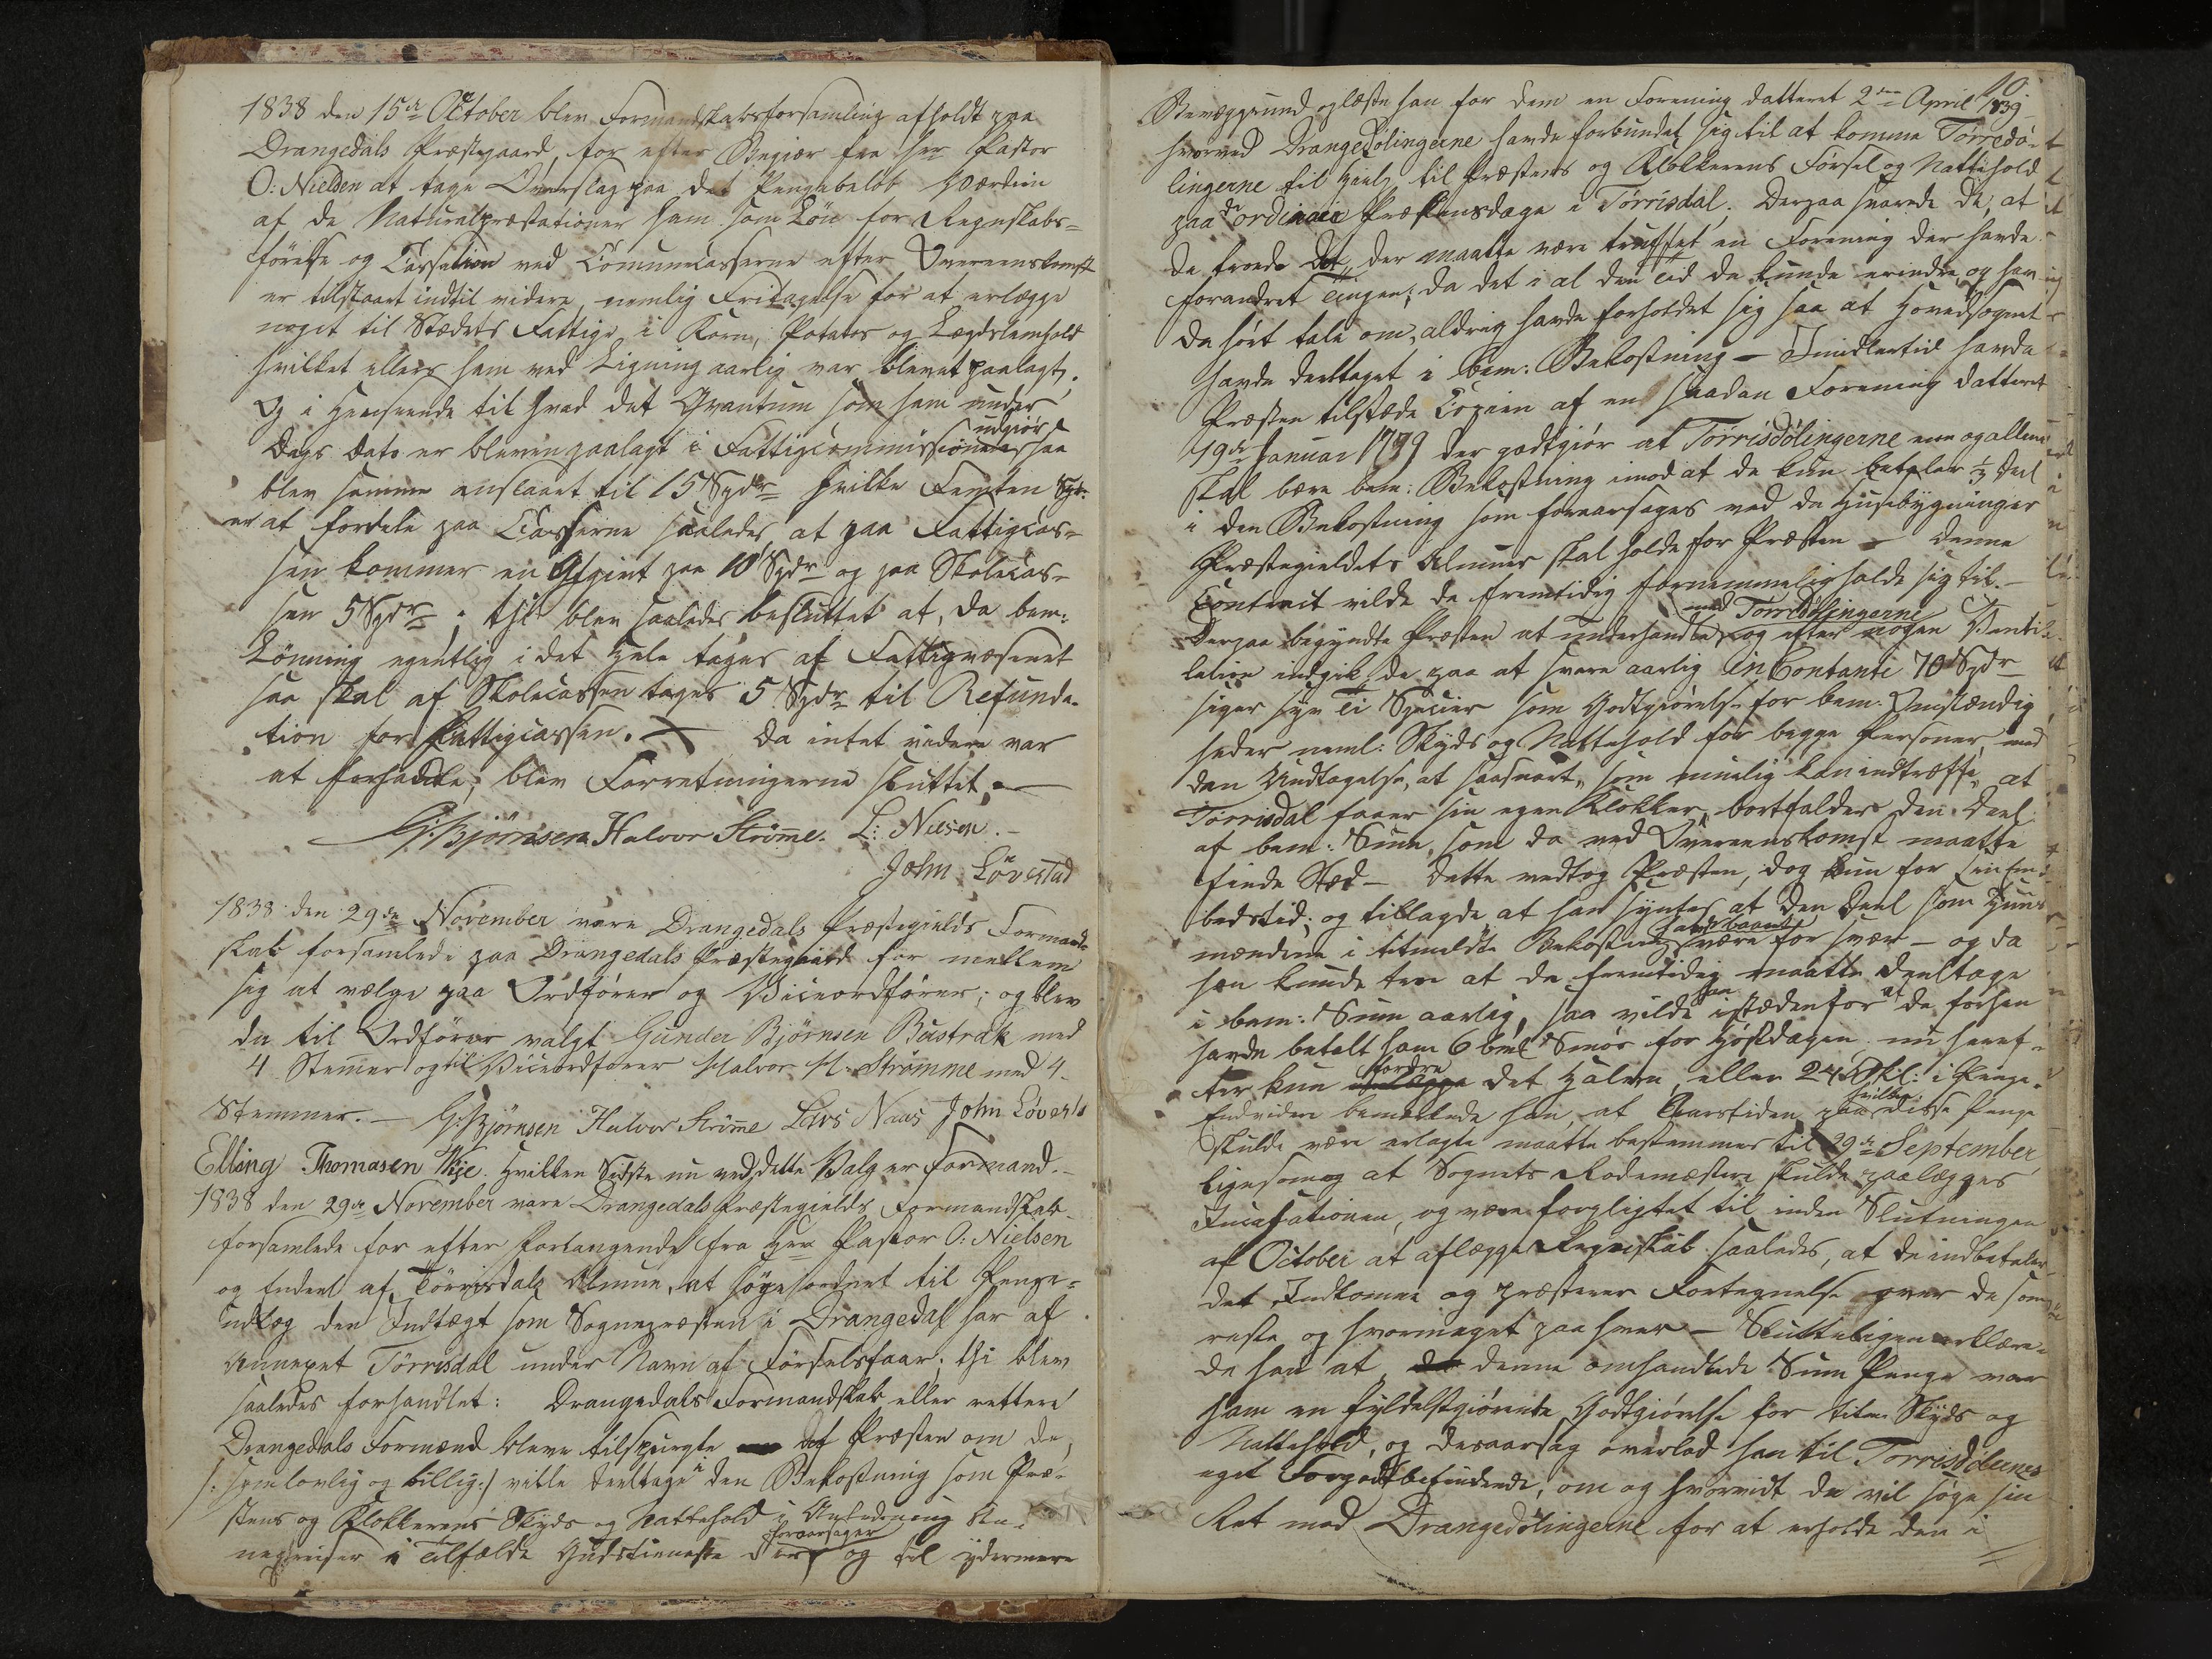 1838 den 15de October blev Formandskabsforsamling afholdt paa
Drangedals Præstegaard, for efter Begiær fra Herr Pastor
O: Nielsen at tage Overslag paa det Pengebeløb Værdien
af de Naturalpræstationer ham som Løn for Regnskabs=
førelse og Cassation ved Comunecasserne efter Overeenskomst
er tilstaaet indtil videre, nemlig Fritagelse for at erlægge
noget til Stædets Fattige i Korn, Potates og Lægdslemhold
hvilket ellers ham ved Ligning aarlig var blevet paalagt.
Og i Henseende til hvad det Qvantum som ham under
Dags Dato er bleven paalagt i Fattigcommissionen udgiør, saa
blev samme anslaaet til 15 Spdr hvilke Femten Spd:
er at fordele paa Casserne saaledes, at paa Fattigcas=
sen kommer en Afgivt paa 10 Spdr og paa Skolecas=
sen 5 Spdr; thi blev saaledes besluttet at, da bem:
Lønning egentlig i det Hele tages af Fattigvæsenet
saa skal af Skolecassen tages 5 Spdr til Refunda=
tion for Fattigcassen. Da intet videre var
at forhandle, blev Forretningerne sluttet.
G: Bjørnsen Halvor Strøme. L: Nielsen.
John Løvestad
1838 den 29de November vare Drangedals Præstegields Formand=
skab forsamlede paa Drangedals Præstegaard for mellem
sig at vælge paa Ordfører og Viceordfører; og blev
da til Ordfører valgt Gunder Bjørnsen Bustrak med
4 Stemer og til Viceordfører Halvor H. Strømme med 4
Stemmer. G: Bjørnsen Halvor Strøme Lars Naas John Løvest
Elling Thomasen Wije. Hvilken Sidste nu ved dette Valg er Formand.
1838 den 29de November vare Drangedals Præstegields Formandskab
forsamlede for efter Forlangende fra Herr Pastor O: Nielsen
og Endeel af Tørrisdals Almue, at søge ordnet til Penge=
udlæg den Indtægt som Sognepræsten i Drangedal har af
Annexet Tørrisdal under Navn af Førselsfaar; thi blev
saaledes forhandlet: Drangedals Formandskab eller rettere
Drangedals Formænd bleve tilspurgte af Præsten om de,
(: som lovlig og billig:) vilde deeltage i den Bekostning som Præ=
stens og Klokkerens Skyds og Nattehold i Anledning An=
nexreiser i Tilfælde Gudstieneste der foraarsager og til ydermere
10
Bevæggrund oplæste han for dem en Forening datteret 2den April 1739
hvorved Drangedølingerne havde forbundet sig til at komme Torredø=
lingerne til Hielp til Præstens og Klokkerens Førsel og Nattehold
paa de ordinair Prækensdage i Tørrisdal. Derpaa svarede de, at
de troede det, der maatte være truffet en Forening der havde
forandret Tingen; da det i al den Tid de kunde erindre, og hav
de hørt tale om, aldrig havde forholdt sig saa at Hovedsognet
havde deeltaget i bem: Bekostning – Imidlertid havde
Præsten tilstæde Copien af en saadan Forening datteret
19de Januar 1779 der godtgiør at Tørrisdølingerne ene og allene
skal bære bem: Bekostning imod at de kun betaler 1/3 Deel
i den Bekostning som foraarsages ved de Huusbygninger
Præstegieldets Almue skal holde for Præsten – Denne
Contract vilde de fremtidig fornemmelig holde sig til. –
Derpaa begyndte Præsten at underhandle med Torrisdølingerne og efter nogen Venti=
lation indgik de paa at svare aarlig in Contanti 70 Spdr
siger syv Ti Specier som Godtgiørelse for bem: Omstændig
heder neml: Skyds og Nattehold for begge Personer, med
den Undtagelse, at saasnart, som muelig kan indtræffe, at
Torrisdal faaer sin egen Klokker, bortfalder den Deel
af bem: Sum, som da ved Overeenskomst maatte
finde Sted – Dette vedtog Præsten, dog kun for sin Em
bedstid; og tillagde at han syntes at den Deel som Huus
mændene i titmeldte Bekostning have baaret være for svær – og da
han kunde troe at de fremtidig maatte deeltage
i bem: Sum aarlig, saa vilde han istædenfor at de forhen
havde betalt ham 6 bml Smør for Høstdagen nu heref=
ter kun fordre det Halve, eller 24 Skil: i Penge.
Endvidere bemærkede han, at Aarstiden paa hvilken disse Penge
skulde være erlagte maatte bestemmes til 29de September
ligesom og at Sognets Rodemestere skulde paalægges
Incassationen, og være forpligtet til inden Slutningen
af October at aflægge Regnskab saaledes, at de indbetaler
det Indkomne og præsterer Fortegnelse over de som
reste og hvormeget paa hver – Sluttelig erklære=
de han at denne omhandlede Sum Penge var
ham en fyldestgiørende Godtgiørelse for titm: Skyds og
Nattehold, og desaarsag overlod han til Torrisdølernes
eget Forgodtbefindende, om og hvorvidt de vil søge sin
Ret mod Drangedølingerne for at erholde den i